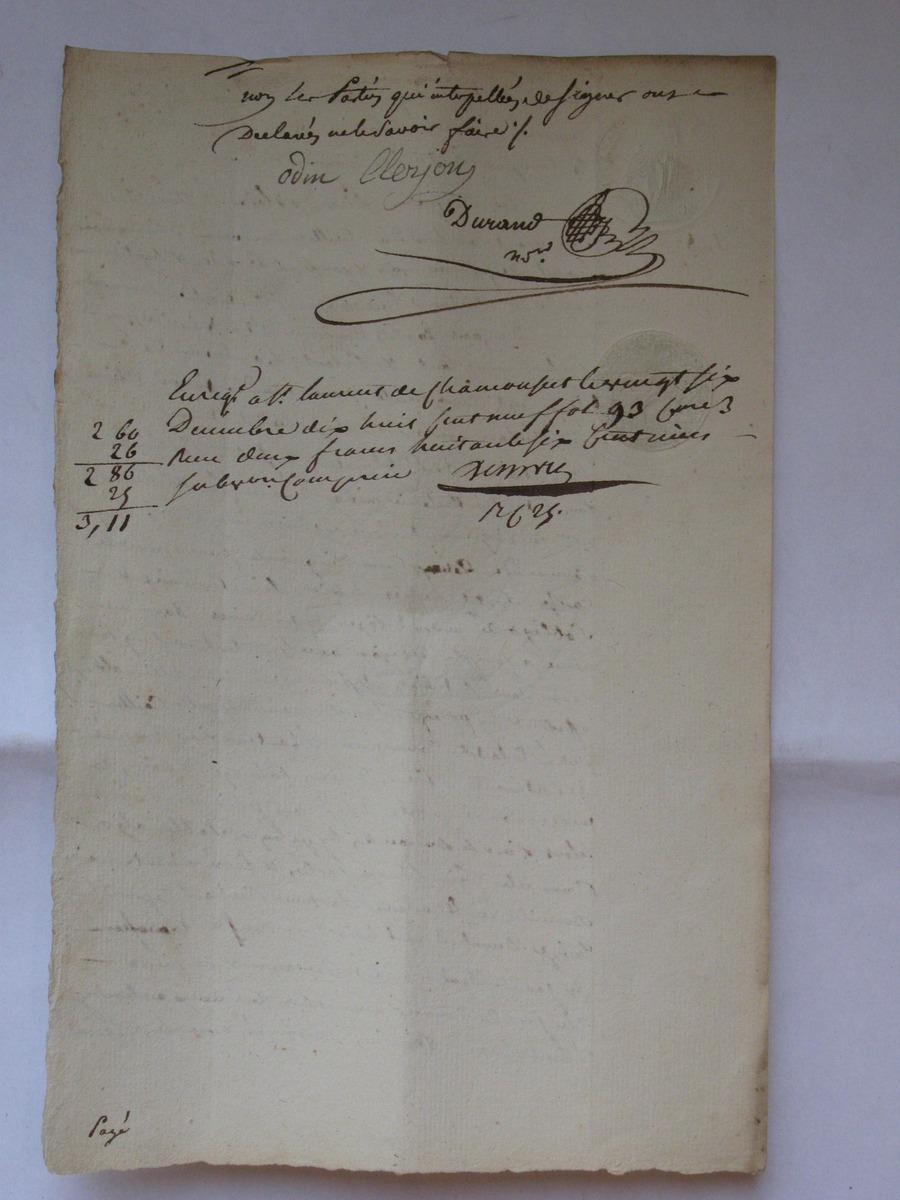 non les Parties qui interpellés de signer ont
Declarés ne le Savoir faire ./.
odin Clerjon
Durand
nore.
Enregé a St. laurent de Chamousset le vingt six
Decembre dix huit Cent neuf fol 93 Case 3
Recu deux francs huitante six Centimes
subvon. Comprise
2 60
26
2 86
25
3,11
R 6 25.
Payé